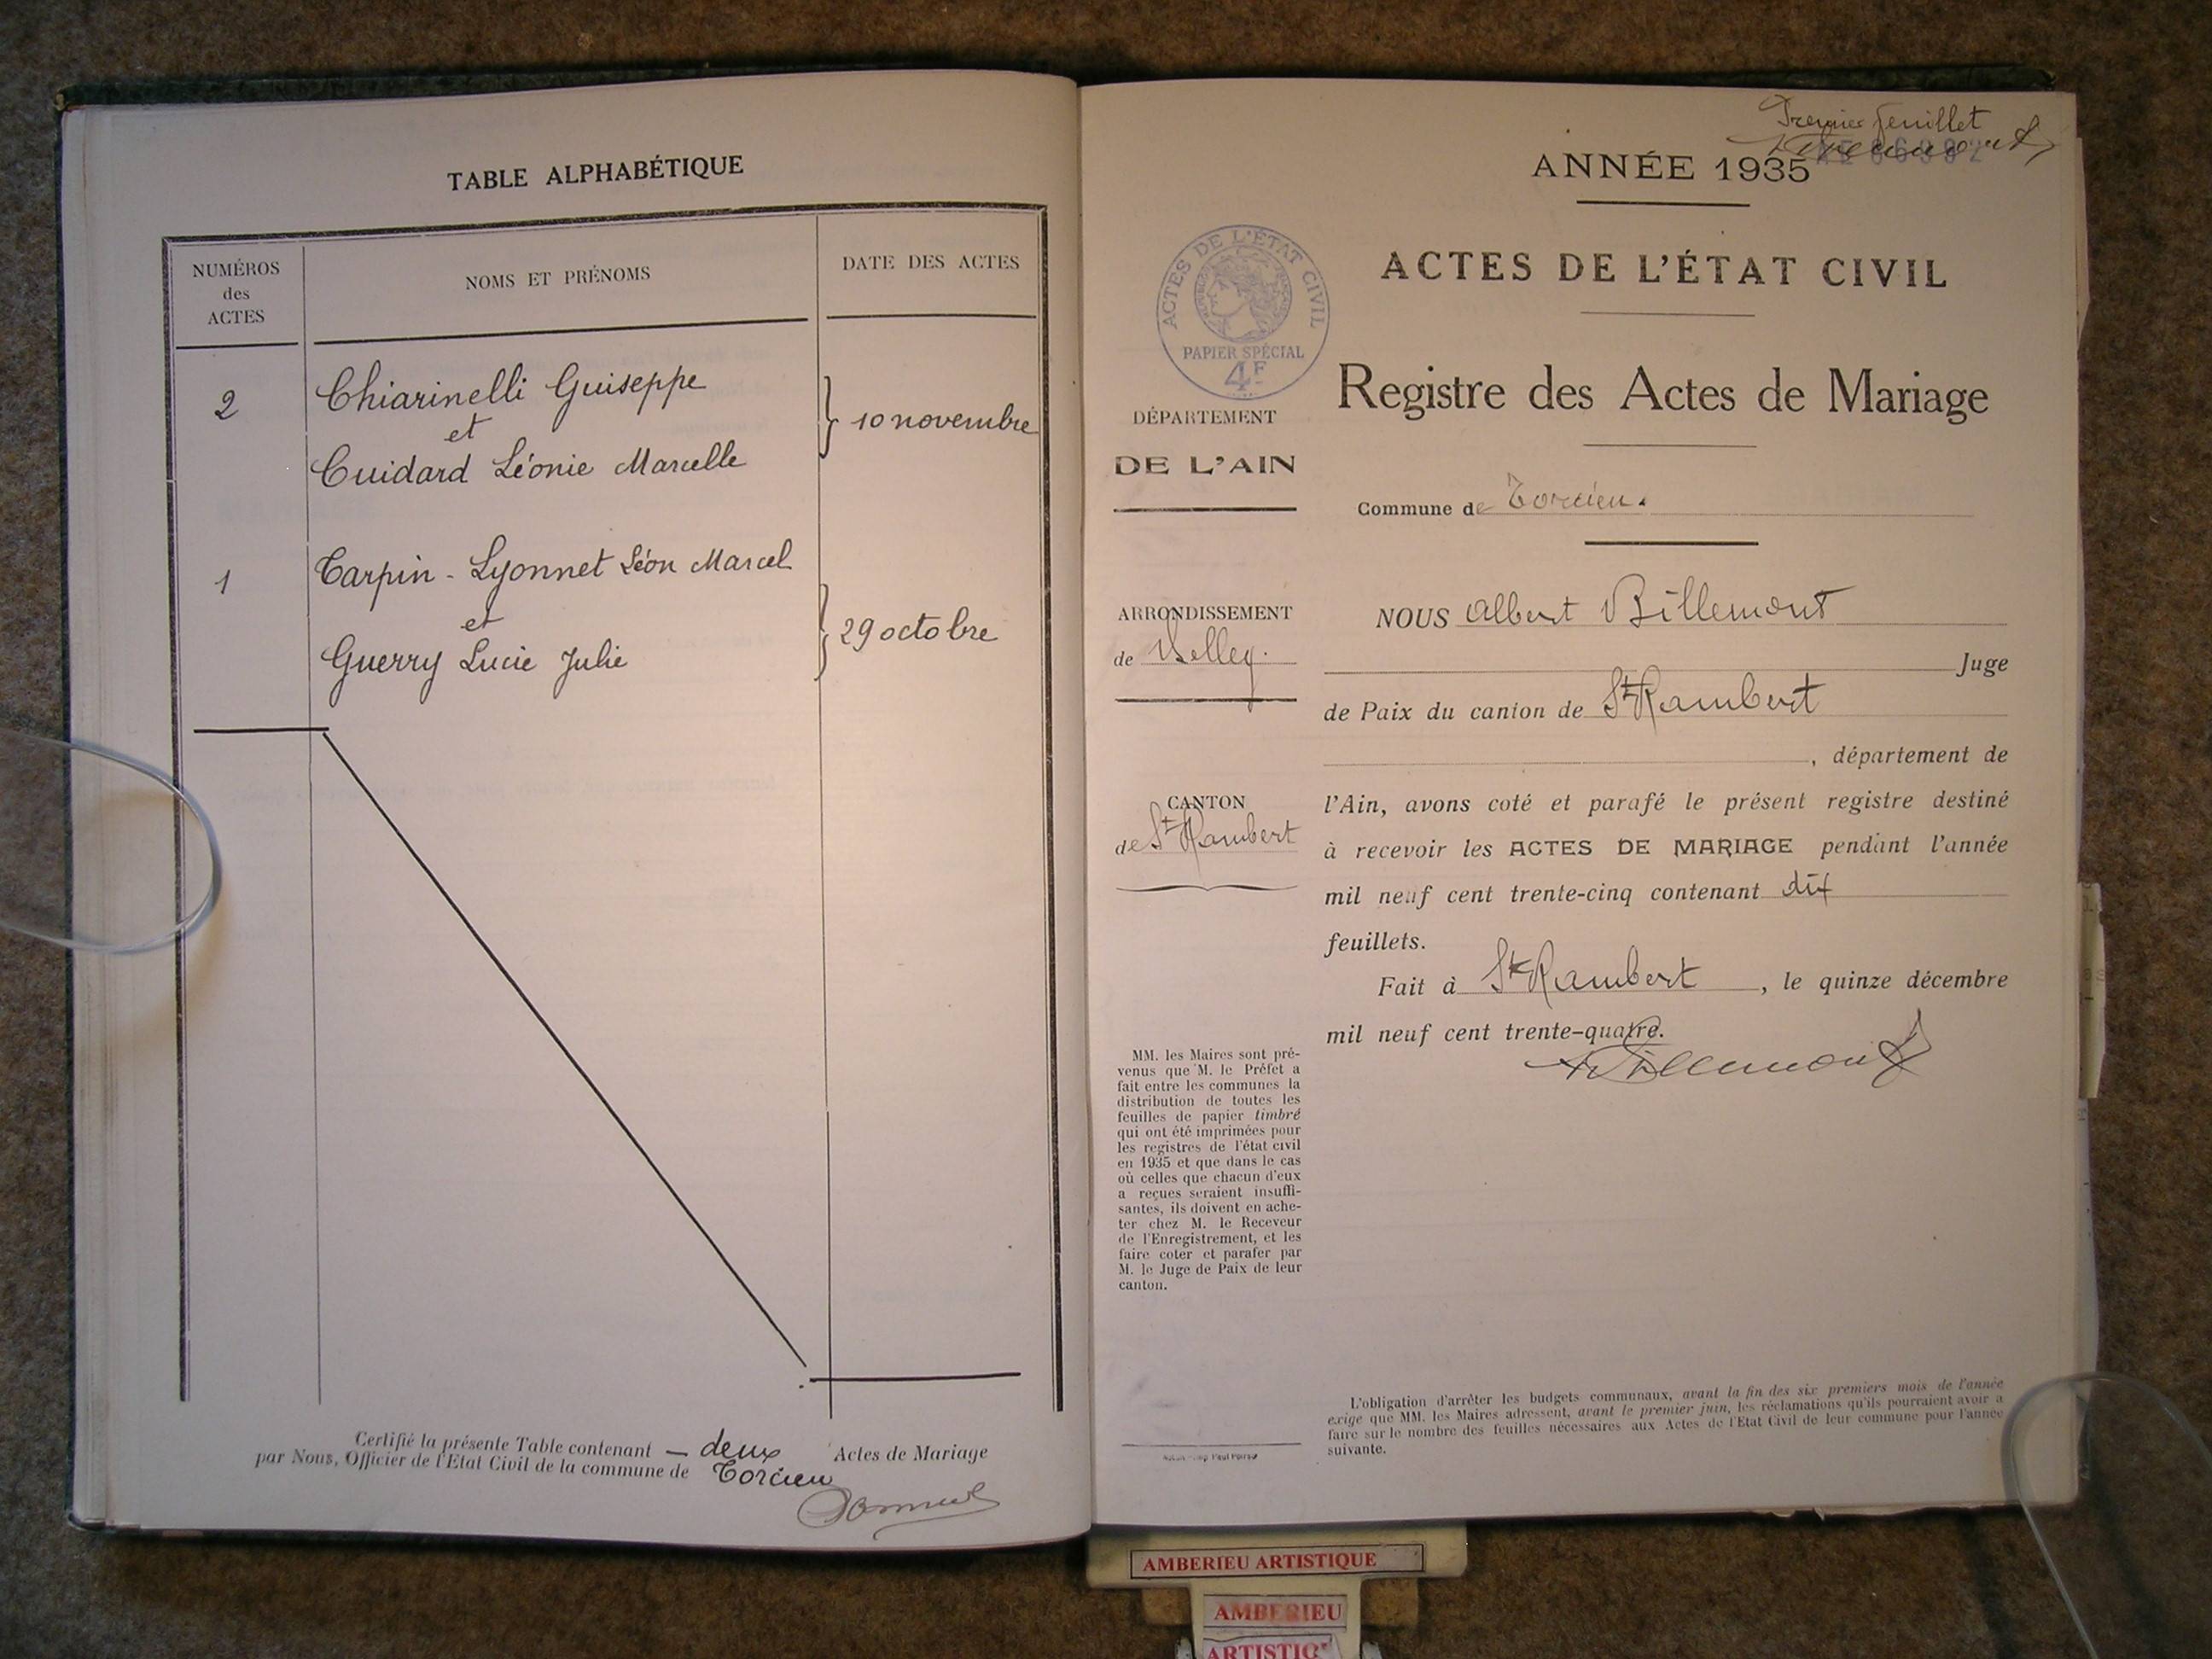 TABLE ALPHABÉTIQUE
NUMÉROS
des
ACTES
NOMS ET PRÉNOMS
DATE DES ACTES
2
Chiarinelli Guiseppe
et
Cuidard Léonie Marcelle
10 novembre
1
Tarpin - Lyonnet Léon Marcel
et
Guerry Lucie Julie
29 octobre
Certifié la présente Table contenant — deux Actes de Mariage
par Nous, Officier de l'Etat Civil de la commune de Torcieu
Premier feuillet
ANNÉE 1935
ACTES DE L'ÉTAT CIVIL
Registre des Actes de Mariage
Commune de Torcieu.
ACTES DE L'ÉTAT CIVIL
PAPIER SPÉCIAL
4F
DÉPARTEMENT
DE L'AIN
ARRONDISSEMENT
de Belley.
CANTON
de St Rambert
NOUS Albert Billemont
Juge
de Paix du canton de St Rambert
, département de
l'Ain, avons coté et parafé le présent registre destiné
à recevoir les ACTES DE MARIAGE pendant l'année
mil neuf cent trente-cinq contenant dix
feuillets.
Fait à St Rambert, le quinze décembre
mil neuf cent trente-quatre.
ABillemont
MM. les Maires sont pré-
venus que M. le Préfet a
fait entre les communes la
distribution de toutes les
feuilles de papier timbré
qui ont été imprimées pour
les registres de l'état civil
en 1935 et que dans le cas
où celles que chacun d'eux
a reçues seraient insuffi-
santes, ils doivent en ache-
ter chez M. le Receveur
de l'Enregistrement, et les
faire coter et parafer par
M. le Juge de Paix de leur
canton.
L'obligation d'arrêter les budgets communaux, avant la fin des six premiers mois de l'année
exige que MM. les Maires adressent, avant le premier juin, les réclamations qu'ils pourraient avoir a
faire sur le nombre des feuilles nécessaires aux Actes de l'Etat Civil de leur commune pour l'année
suivante.
AMBERIEU ARTISTIQUE
AMBERIEU
ARTISTIQ